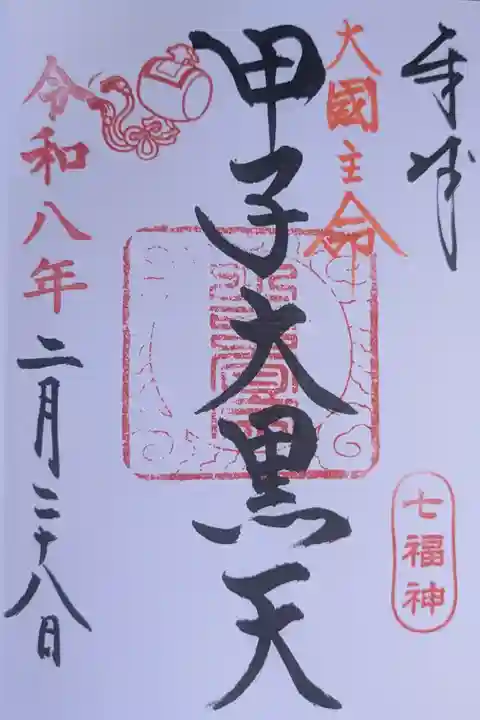 奉拝
大國主命
七福神
甲子大黒天
令和八年二月二十八日